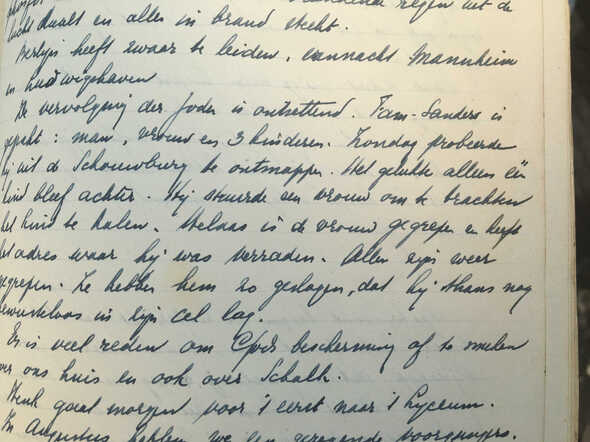 regen uit de
lucht daalt en alles in brand steekt.
Berlijn heeft zwaar te leiden, vannacht Mannheim
en Ludwigshaven
De vervolging der Joden is ontzettend. Fam. Sanders is
gepakt: man, vrouw en 3 kinderen. Zondag probeerde
hij uit de Schouwburg te ontsnappen. Het gelukte alleen één
kind bleef achter. Hij stuurde een vrouw om te trachten
het kind te halen. Helaas is de vrouw gegrepen en heeft
het adres waar hij was verraden. Allen zijn weer
gegrepen. Ze hebben hem zo geslagen, dat hij thans nog
bewusteloos in zijn cel lag.
Er is veel reden om Gods bescherming af te smeken
over ons huis en ook over Schalk.
Henk gaat morgen voor 't eerst naar 't Lyceum.
In Augustus hebben we een gezegende